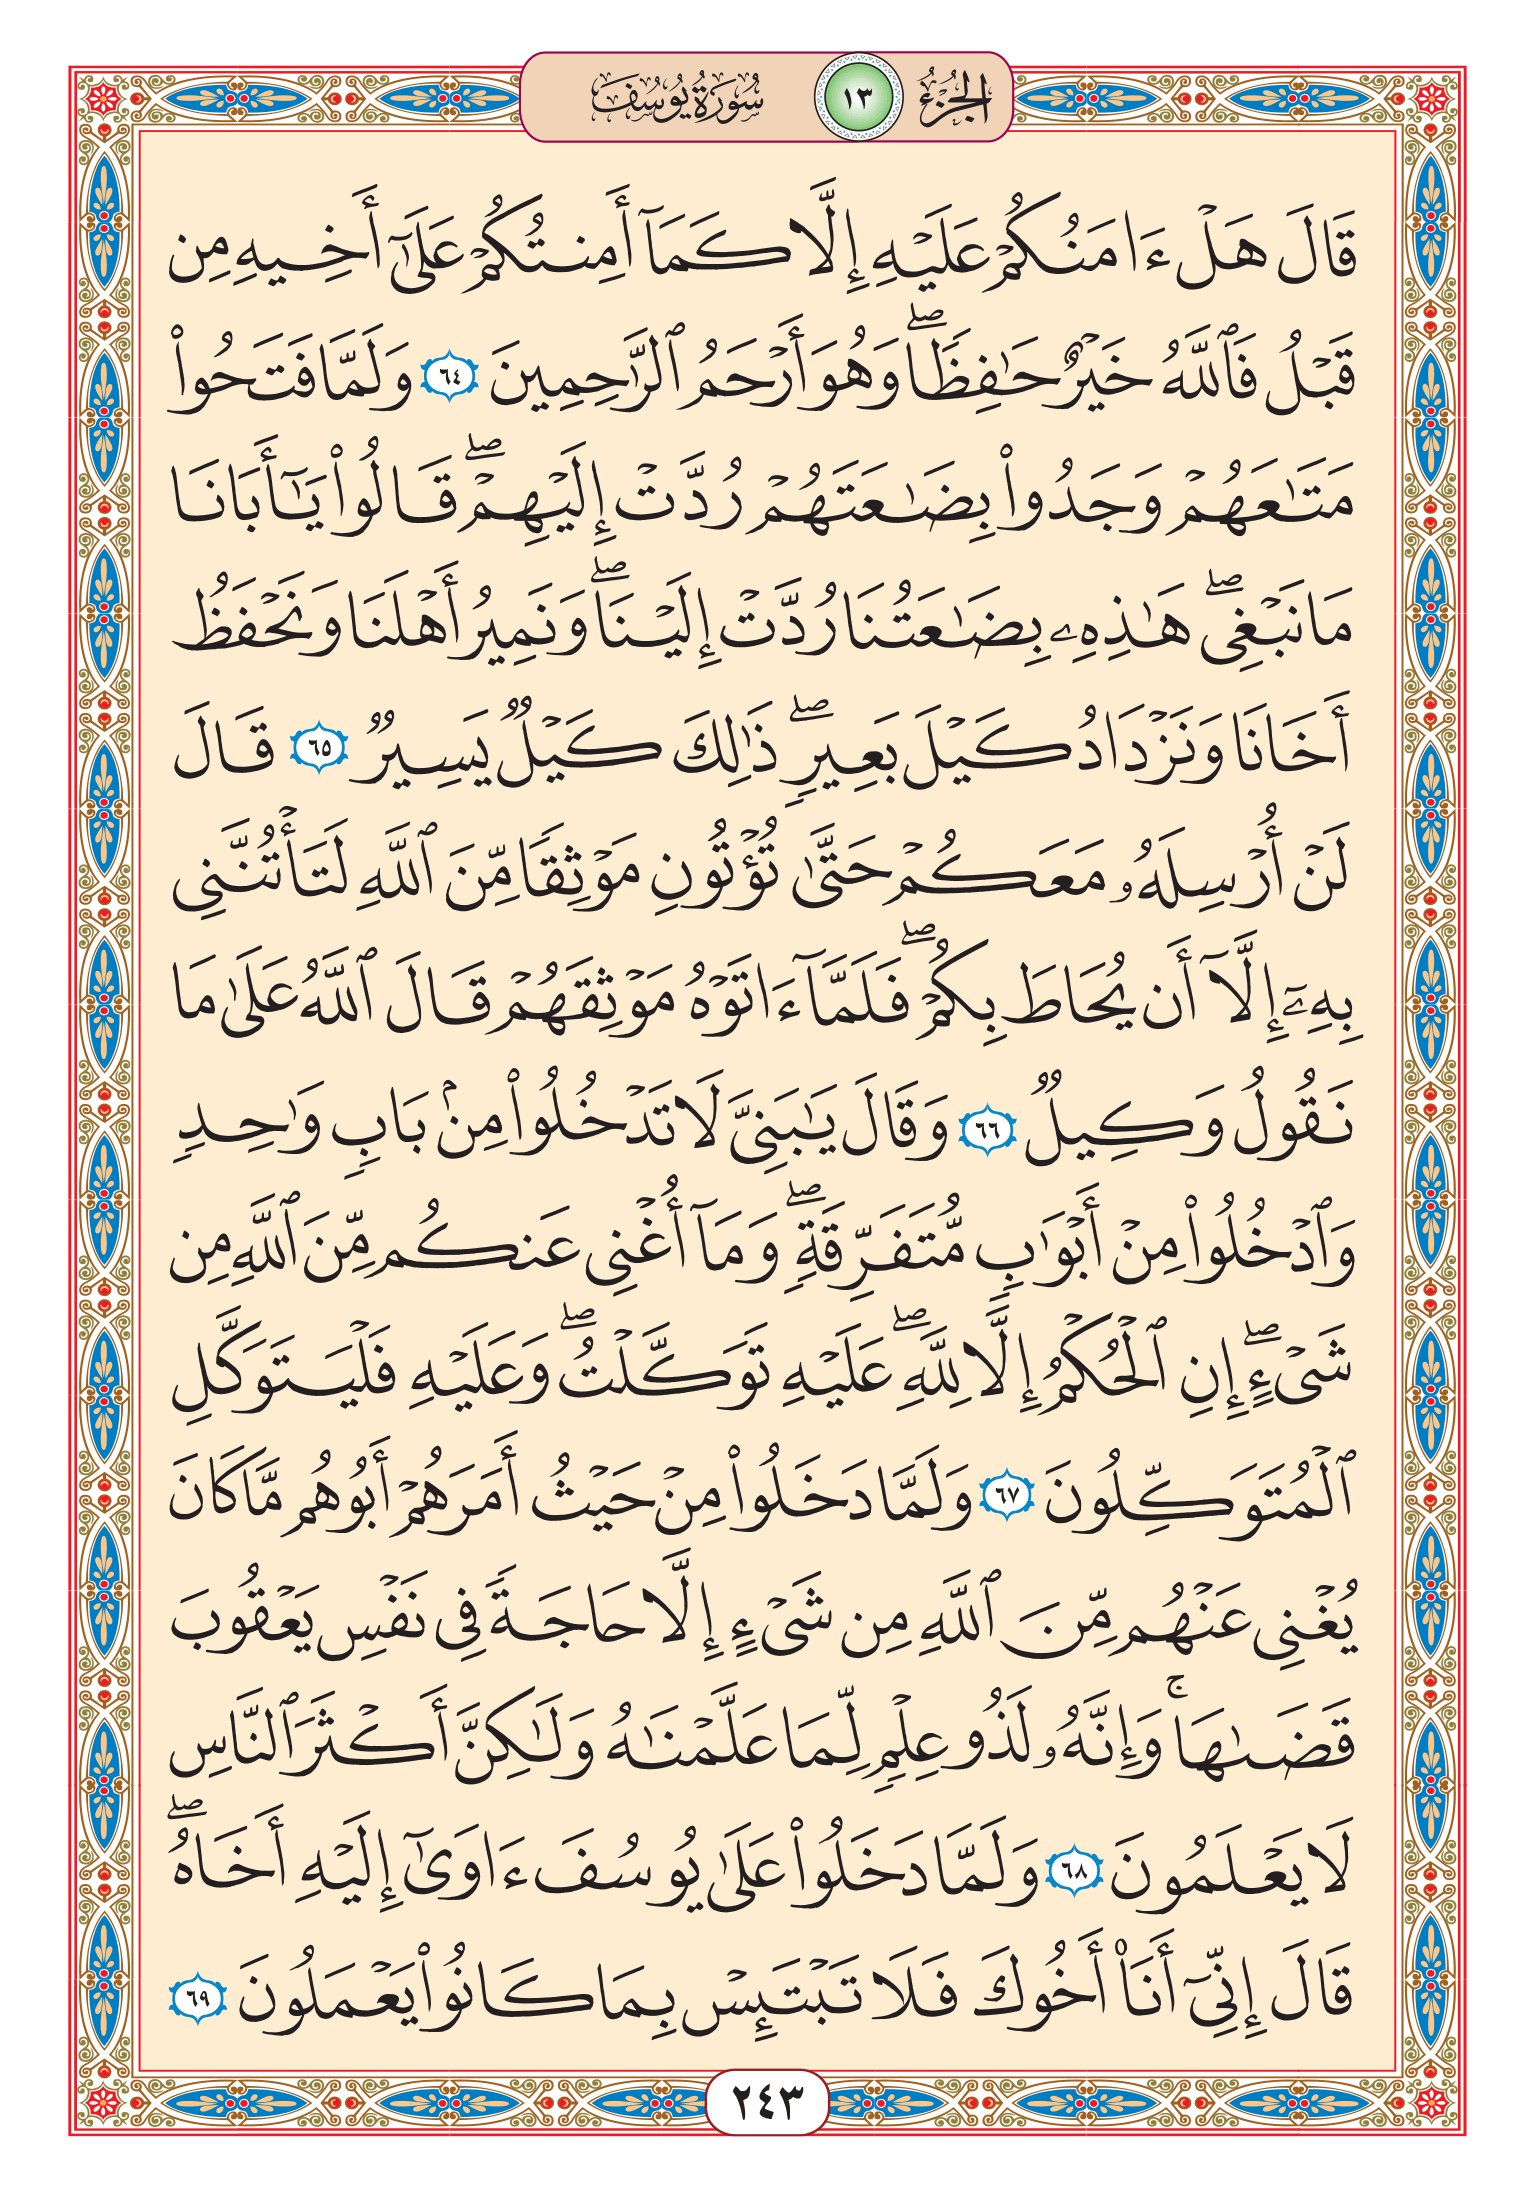 الجزء ١٣ سورة يوسف
قَالَ هَلْ ءَامَنُكُمْ عَلَيْهِ إِلَّا كَمَآ أَمِنتُكُمْ عَلَىٰٓ أَخِيهِ مِن
قَبْلُ فَٱللَّهُ خَيْرٌ حَـٰفِظًاۖ وَهُوَ أَرْحَمُ ٱلرَّٰحِمِينَ ٦٤ وَلَمَّا فَتَحُوا۟
مَتَـٰعَهُمْ وَجَدُوا۟ بِضَـٰعَتَهُمْ رُدَّتْ إِلَيْهِمْۖ قَالُوا۟ يَـٰٓأَبَانَا
مَا نَبْغِىۖ هَـٰذِهِۦ بِضَـٰعَتُنَا رُدَّتْ إِلَيْنَاۖ وَنَمِيرُ أَهْلَنَا وَنَحْفَظُ
أَخَانَا وَنَزْدَادُ كَيْلَ بَعِيرٍۖ ذَٰلِكَ كَيْلٌ يَسِيرٌ ٦٥ قَالَ
لَنْ أُرْسِلَهُۥ مَعَكُمْ حَتَّىٰ تُؤْتُونِ مَوْثِقًا مِّنَ ٱللَّهِ لَتَأْتُنَّنِى
بِهِۦٓ إِلَّآ أَن يُحَاطَ بِكُمْۖ فَلَمَّآ ءَاتَوْهُ مَوْثِقَهُمْ قَالَ ٱللَّهُ عَلَىٰ مَا
نَقُولُ وَكِيلٌ ٦٦ وَقَالَ يَـٰبَنِىَّ لَا تَدْخُلُوا۟ مِنۢ بَابٍ وَٰحِدٍ
وَٱدْخُلُوا۟ مِنْ أَبْوَٰبٍ مُّتَفَرِّقَةٍۖ وَمَآ أُغْنِى عَنكُم مِّنَ ٱللَّهِ مِن
شَىْءٍۖ إِنِ ٱلْحُكْمُ إِلَّا لِلَّهِۖ عَلَيْهِ تَوَكَّلْتُۖ وَعَلَيْهِ فَلْيَتَوَكَّلِ
ٱلْمُتَوَكِّلُونَ ٦٧ وَلَمَّا دَخَلُوا۟ مِنْ حَيْثُ أَمَرَهُمْ أَبُوهُم مَّا كَانَ
يُغْنِى عَنْهُم مِّنَ ٱللَّهِ مِن شَىْءٍ إِلَّا حَاجَةً فِى نَفْسِ يَعْقُوبَ
قَضَىٰهَاۚ وَإِنَّهُۥ لَذُو عِلْمٍ لِّمَا عَلَّمْنَـٰهُ وَلَـٰكِنَّ أَكْثَرَ ٱلنَّاسِ
لَا يَعْلَمُونَ ٦٨ وَلَمَّا دَخَلُوا۟ عَلَىٰ يُوسُفَ ءَاوَىٰٓ إِلَيْهِ أَخَاهُۖ
قَالَ إِنِّىٓ أَنَا۠ أَخُوكَ فَلَا تَبْتَئِسْ بِمَا كَانُوا۟ يَعْمَلُونَ ٦٩
٢٤٣